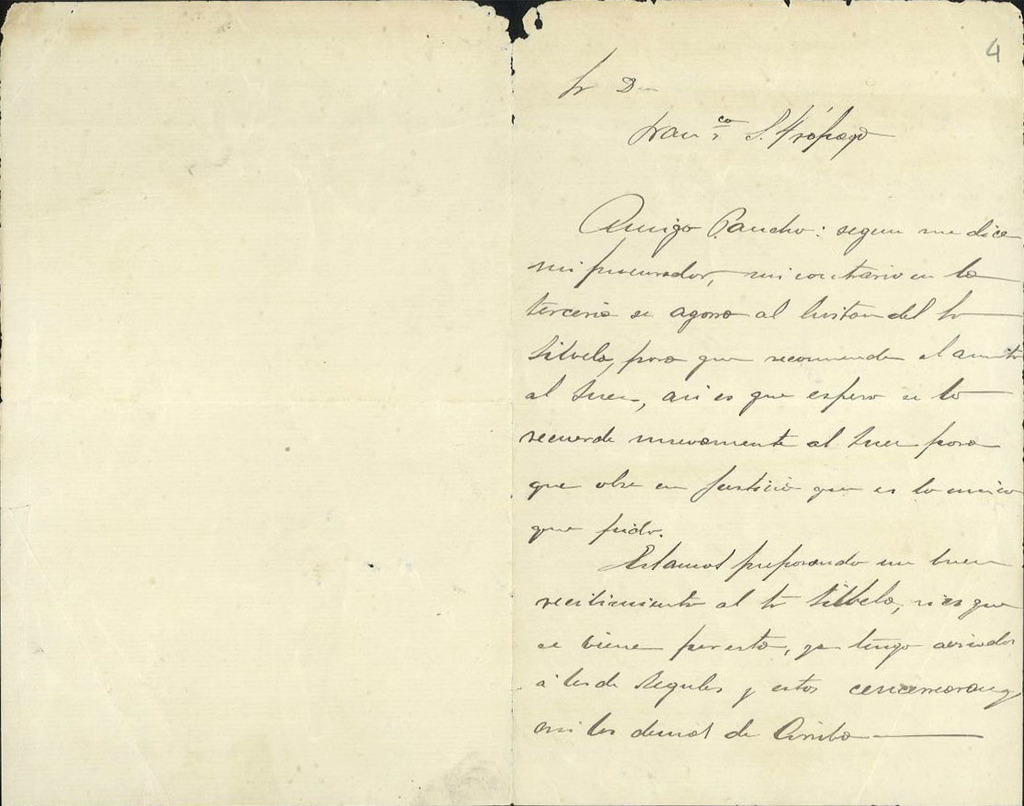 4
Sr Dn
Franco S. Trápaga
Amigo Pancho: segun me dice
mi procurador, mi contrario en la
terceria se agarra al del Sr
Silvela, para que recomiende el asunto
al Juez, asi es que espero se lo
recuerde nuevamente al Juez para
que obre en justicia que es lo unico
que pido.
Estamos preparando un buen
recibimiento al Sr Silvela, si es que
se viene por esta, ya tengo avisados
á los de Regules y estos
a los demas de Arriba